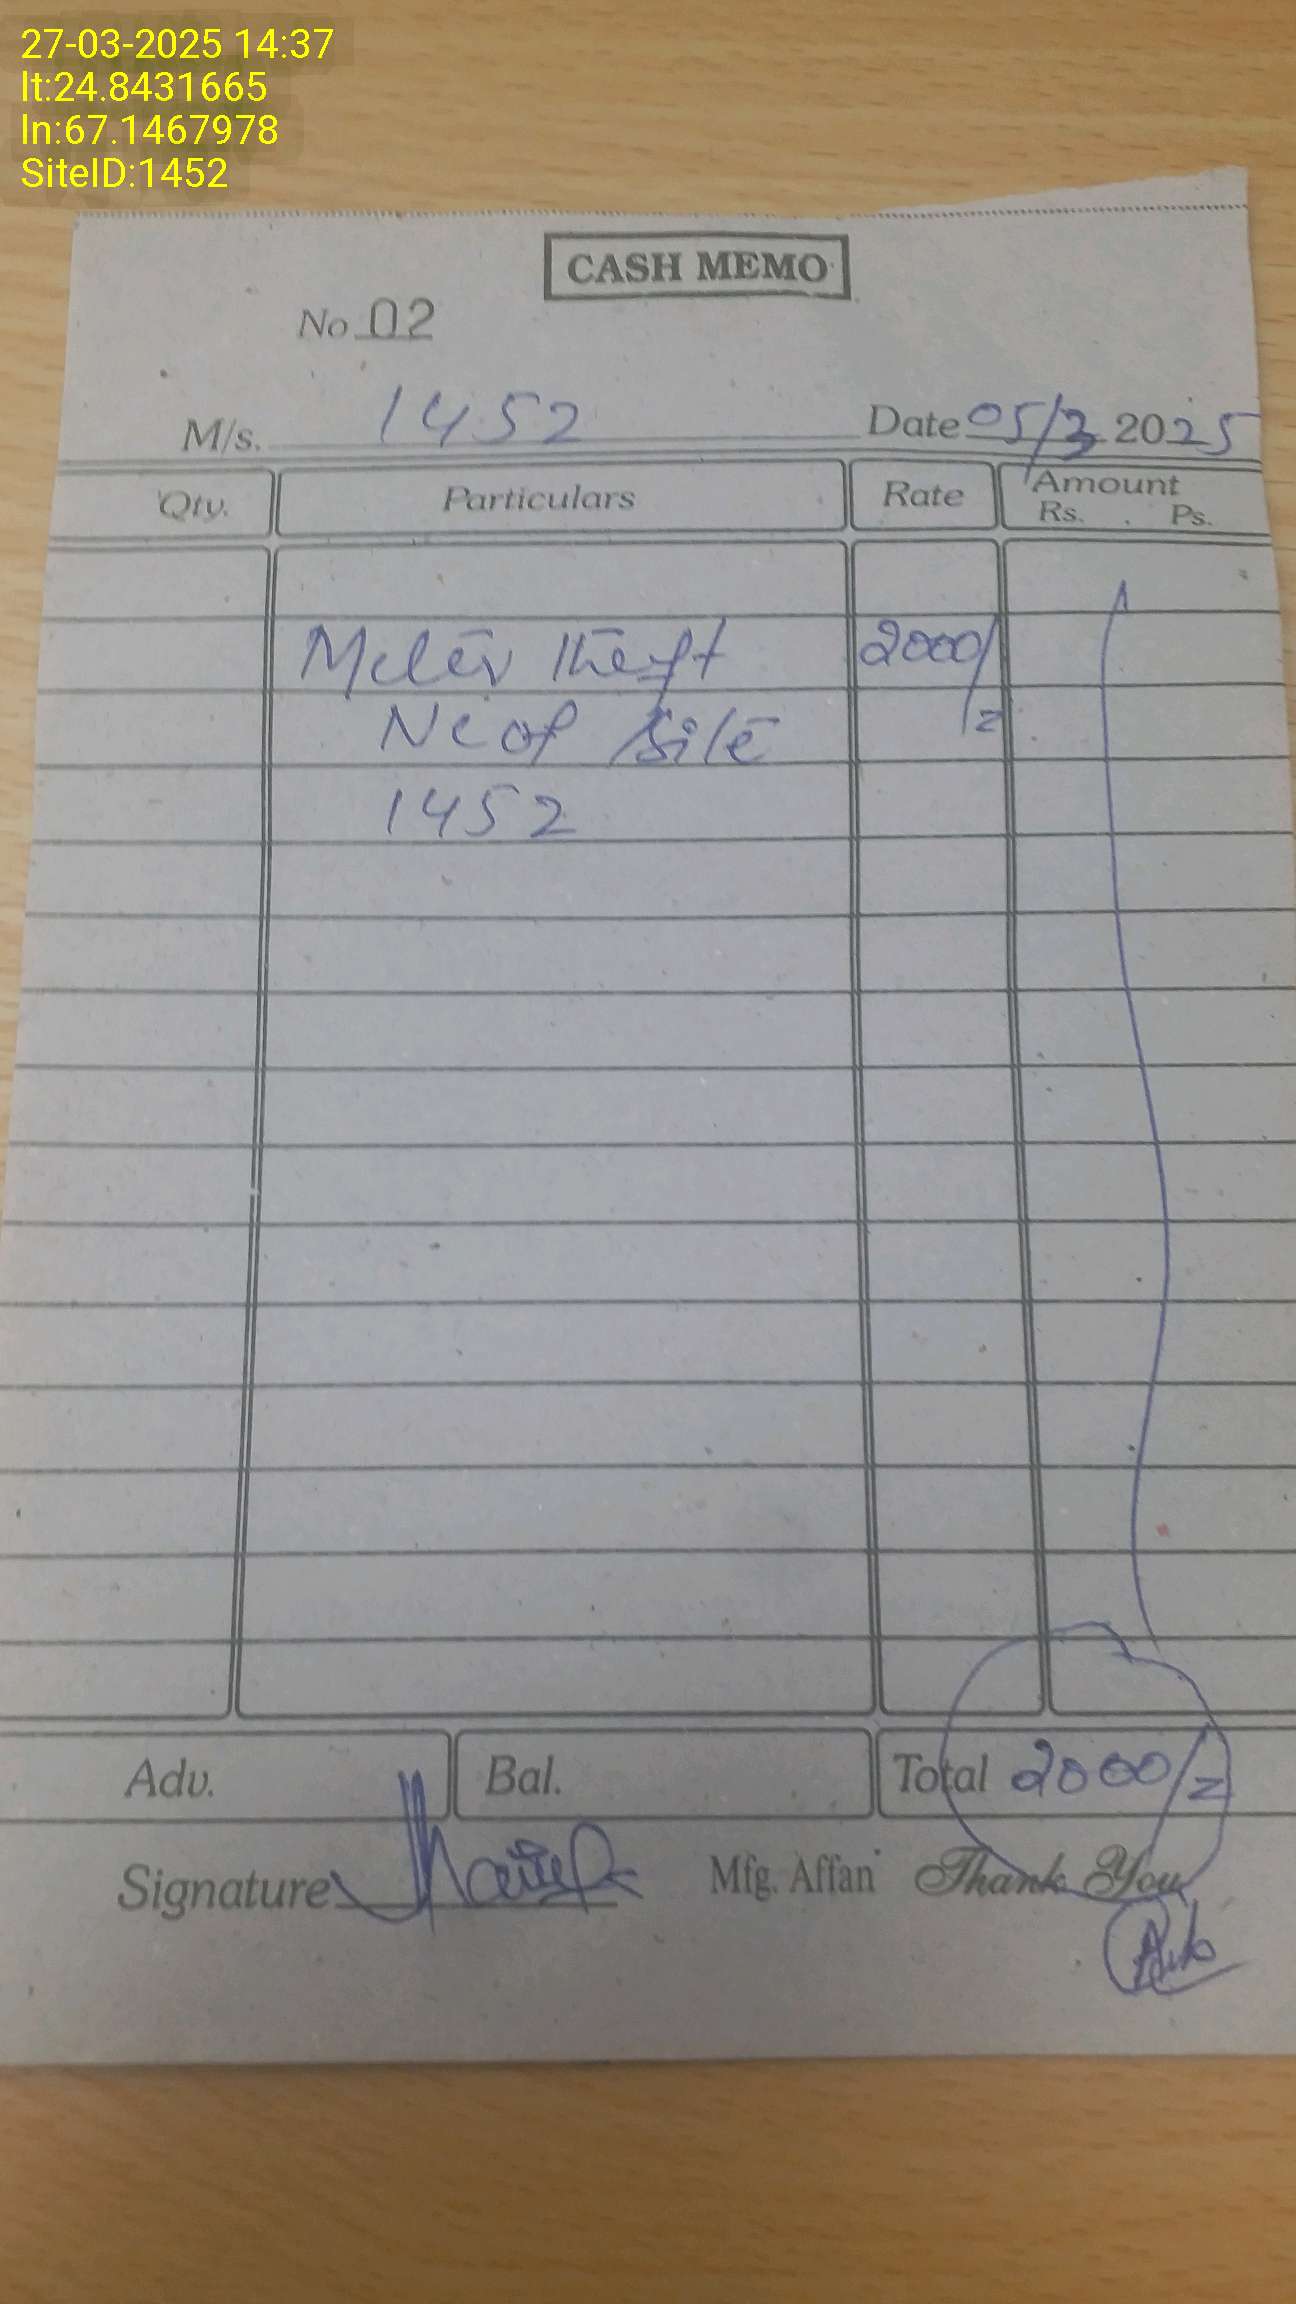 27-03-2025 14:37
lt:24.8431665
ln:67.1467978
SiteID:1452
CASH MEMO
No 02
M/s. 1452 Date 05/3 2025
Qty. Particulars Rate Amount
Rs. Ps.
Meter theft 2000/
Nc of Site /=
1452
Adv. Bal. Total 2000/=
Signature Mfg. Affan Thank You